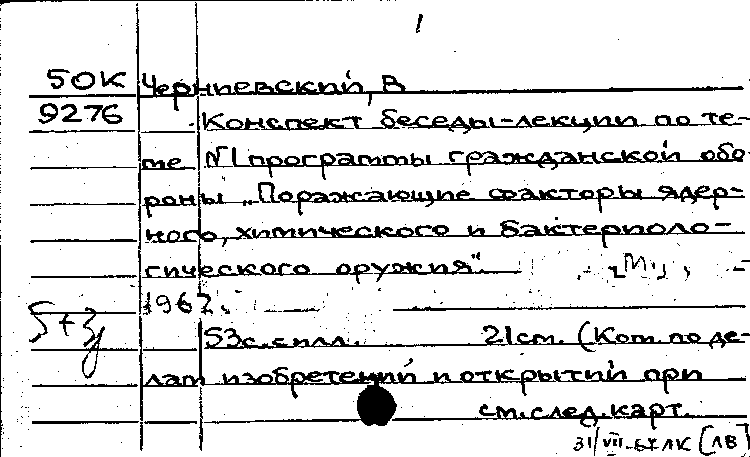 1
50К Черниевский, В
9276 Конспект беседы-лекции по те-
ме №1 программы гражданской обо-
роны „Поражающие факторы ядер-
ного, химического и бактериоло-
гического оружия". [М.], -
1967.
5+3
53с.с илл. 21см. (Ком. по де-
лам изобретений и открытий при
см.след.карт.
31/VII-67 ЛК [ЛВ]